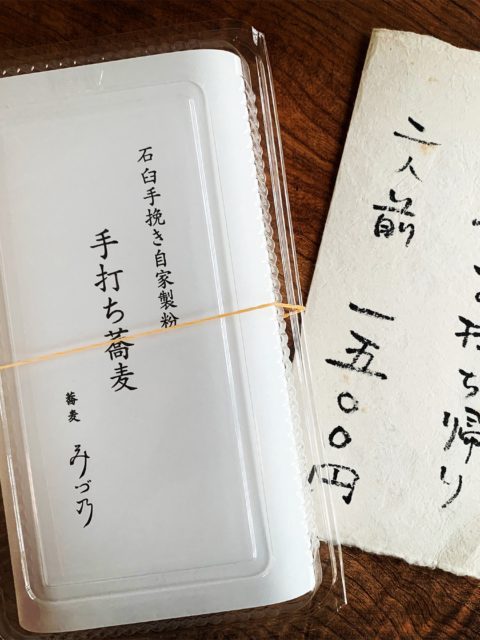 石臼手挽き自家製粉
手打ち蕎麦
蕎麦 みづ乃
お持ち帰り
二人前 一五〇〇円